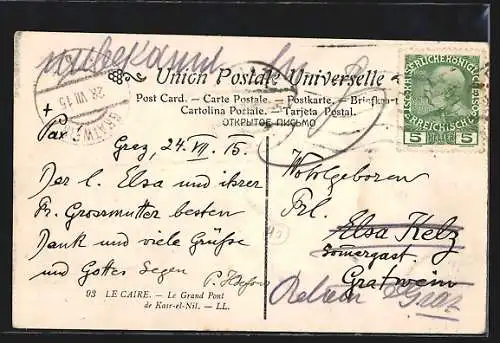 unbekannt
Union Postale Universelle
Post Card. — Carte Postale. — Postkarte. — Briefkaart
Cartolina Postale. — Tarjeta Postal.
ОТКРЫТОЕ ПИСЬМО
KAISERLICHE KÖNIGLICHE
ÖSTERREICHISCHE POST
5 HELLER 5
GRATWEIN
28 VII 15
+
Pax
Graz, 24. VII. 15.
Der l. Elsa und ihrer
Fr. Grossmutter besten
Dank und viele Grüße
und Gottes Segen
P. Ildefons
Wohlgeboren
Frl.
Elsa Kelz
Sommergast.
Gratwein
Retour Graz
93 LE CAIRE. — Le Grand Pont
de Kasr-el-Nil. — LL.